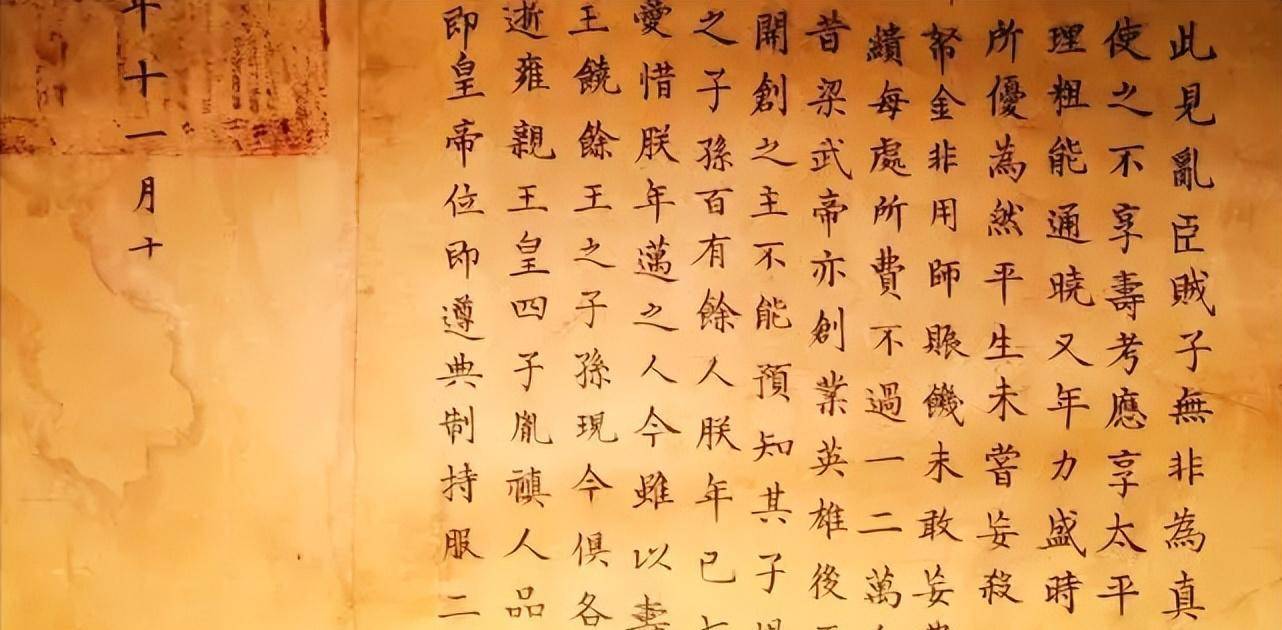 此見亂臣賊子無非為真
使之不享壽考應享太平
理粗能通曉又年力盛時
所優為然平生未嘗妄殺
帑金非用師賑饑未敢妄
績每處所費不過一二萬
昔梁武帝亦創業英雄後
開創之主不能預知其子
之子孫百有餘人朕年已
愛惜朕年邁之人今雖以壽
王饒餘王之子孫現今俱各
逝雍親王皇四子胤禛人品
即皇帝位即遵典制持服二
年十一月十